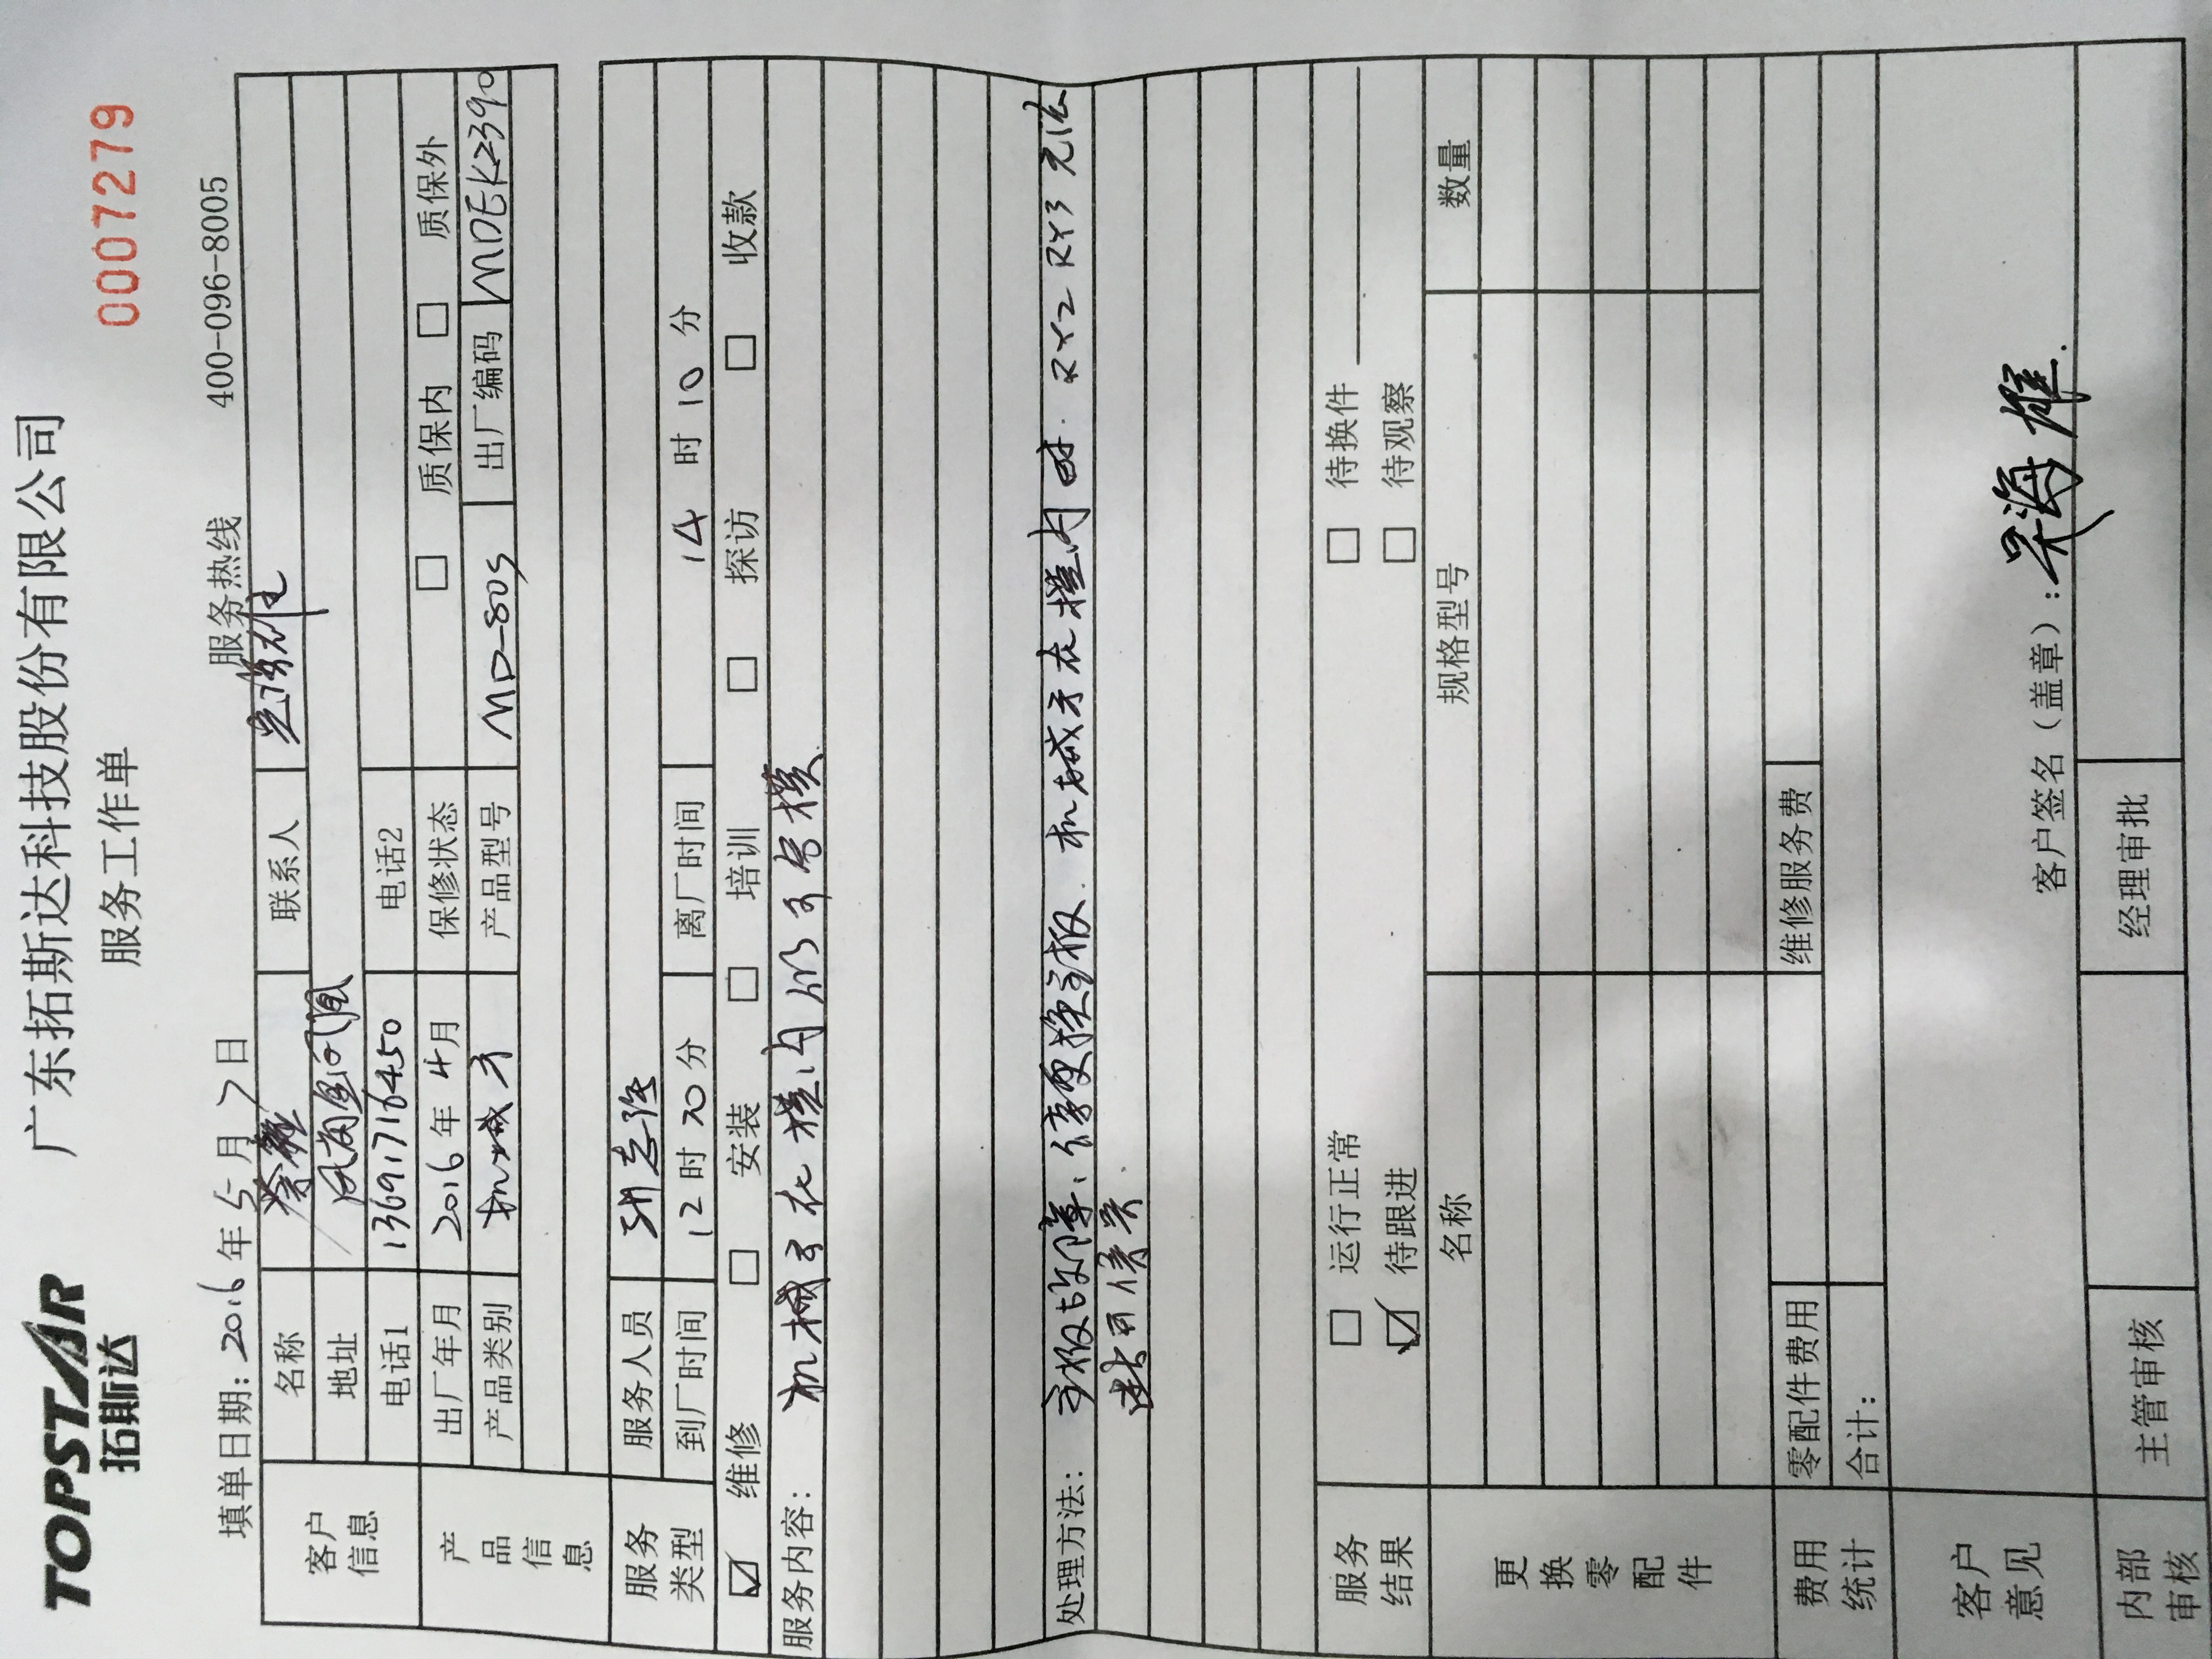 TOPSTAR
拓斯达
广东拓斯达科技股份有限公司
服务工作单
0007279
填单日期: 2016 年 5 月 7 日
服务热线 400-096-8005
客户信息
名称
联系人
地址
电话1 13691716450 电话2
产品信息
出厂年月 2016 年 4 月 保修状态 □ 质保内 □ 质保外
产品类别 机械手 产品型号 MD-80S 出厂编码 MDEK2390
服务类型
服务人员
到厂时间 12 时 20 分 离厂时间 14 时 10 分
☑ 维修 □ 安装 □ 培训 □ 探访 □ 收款
服务内容: 机械手在模内
处理方法: 主板故障、 更换主板. 机械手在模内时. RY2 RY3 无法
服务结果
□ 运行正常 □ 待换件
☑ 待跟进 □ 待观察
更换零配件
名称 规格型号 数量
费用统计
零配件费用 维修服务费
合计:
客户意见
客户签名(盖章):
内部审核
主管审核 经理审批